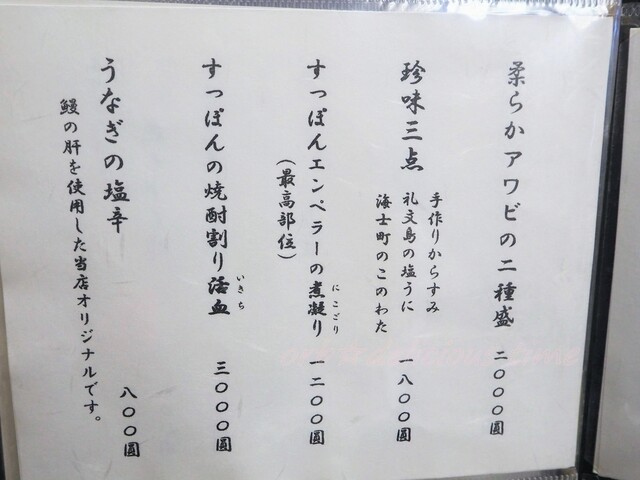 柔らかアワビの二種盛 二〇〇〇圓
珍味三点 一八〇〇圓
手作りからすみ
礼文島の塩うに
海士町のこのわた
すっぽんエンペラーの煮凝り 一二〇〇圓
にこごり
(最高部位)
すっぽんの焼酎割り活血 三〇〇〇圓
いきち
うなぎの塩辛 八〇〇圓
鰻の肝を使用した当店オリジナルです。